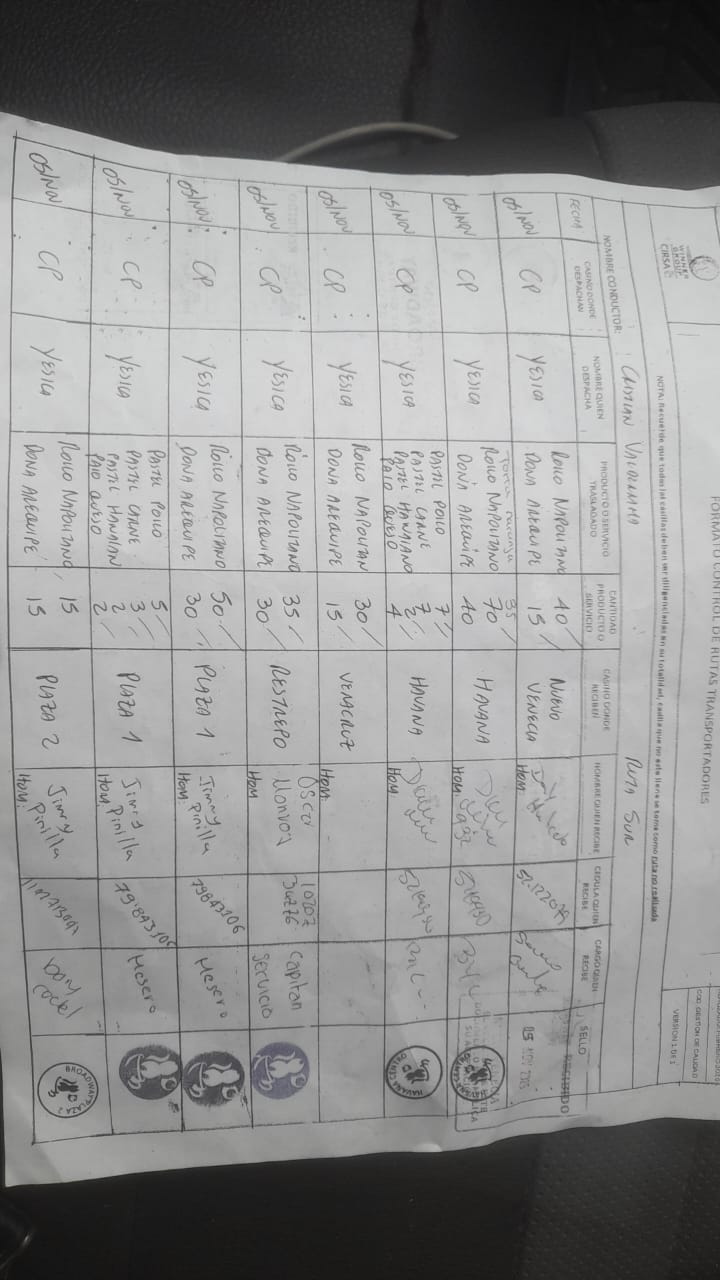 FORMATO CONTROL DE RUTAS TRANSPORTADORES
COD. GESTION DE CALIDAD
VERSION 1 DE 1
WINNER GROUP
CIRSA
NOTA: Recuerde que todas las casillas deben ser diligenciadas en su totalidad, casilla que no este llena se toma como ruta no realizada
NOMBRE CONDUCTOR: CRISTIAN VALDERRAMA RUTA SUR
FECHA CASINO DONDE DESPACHAN NOMBRE QUIEN DESPACHA PRODUCTO O SERVICIO TRASLADADO CANTIDAD PRODUCTO O SERVICIO CASINO DONDE RECIBEN NOMBRE QUIEN RECIBE CEDULA QUIEN RECIBE CARGO QUIEN RECIBE SELLO
05/NOV CP YESICA ROLLO NAPOLITANO 40 NUEVO Hom:
DONA AREQUIPE 15 VENECIA
RECIBIDO
05 NOV
05/NOV CP YESICA Torta naranja 35
ROLLO NAPOLITANO 70 HAVANA Hom:
DONA AREQUIPE 40
05/NOV CP YESICA PASTEL POLLO 7
PASTEL CARNE 7 HAVANA Hom:
PASTEL HAWAIANO 2
PALO QUESO 4
HAVANA
05/NOV CP YESICA ROLLO NAPOLITAN 30 VERACRUZ Hom:
DONA AREQUIPE 15
05/NOV CP YESICA ROLLO NAPOLITANO 35 RESTREPO Oscar Capitan
DONA AREQUIPE 30 Hom: Servicio
05/NOV CP YESICA ROLLO NAPOLITANO 50 PLAZA 1 Jimmy Pinilla 79843106 Mesero
DONA AREQUIPE 30 Hom:
05/NOV CP YESICA PASTEL POLLO 5
PASTEL CARNE 3 PLAZA 1 Jimmy Pinilla 79.843.106 Mesero
PASTEL HAWAIAN 2 Hom:
PALO QUESO 2
05/NOV CP YESICA ROLLO NAPOLITANO 15 PLAZA 2 Jimmy Pinilla
DONA AREQUIPE 15 Hom:
BROADWAY PLAZA 2